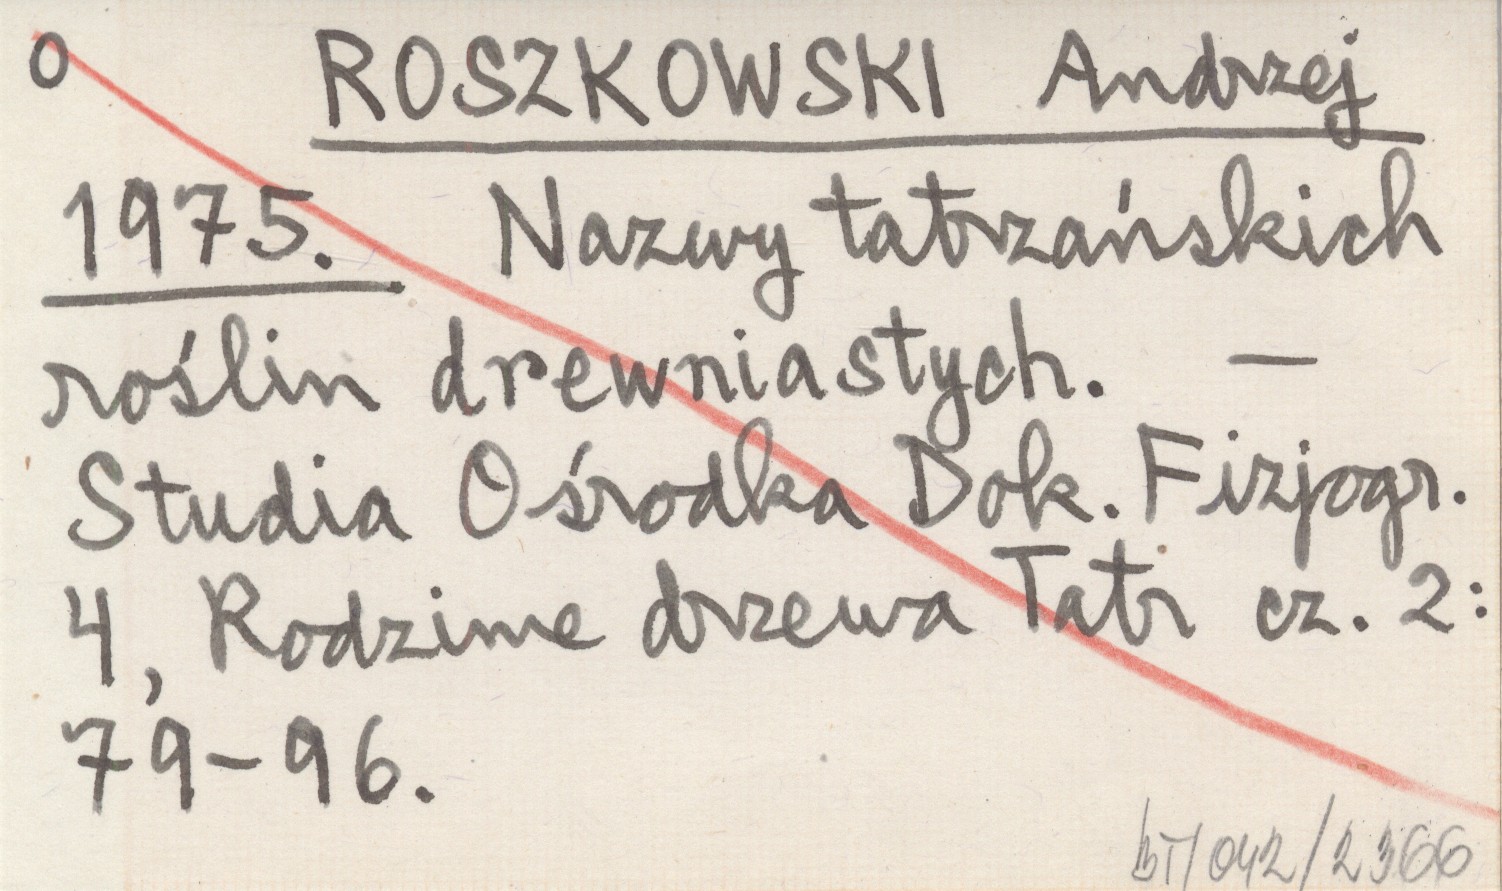 o ROSZKOWSKI Andrzej
1975. Nazwy tatrzańskich
roślin drewniastych. —
Studia Ośrodka Dok. Fizjogr.
4, Rodzime drzewa Tatr cz. 2:
79-96.
BT/042/2366